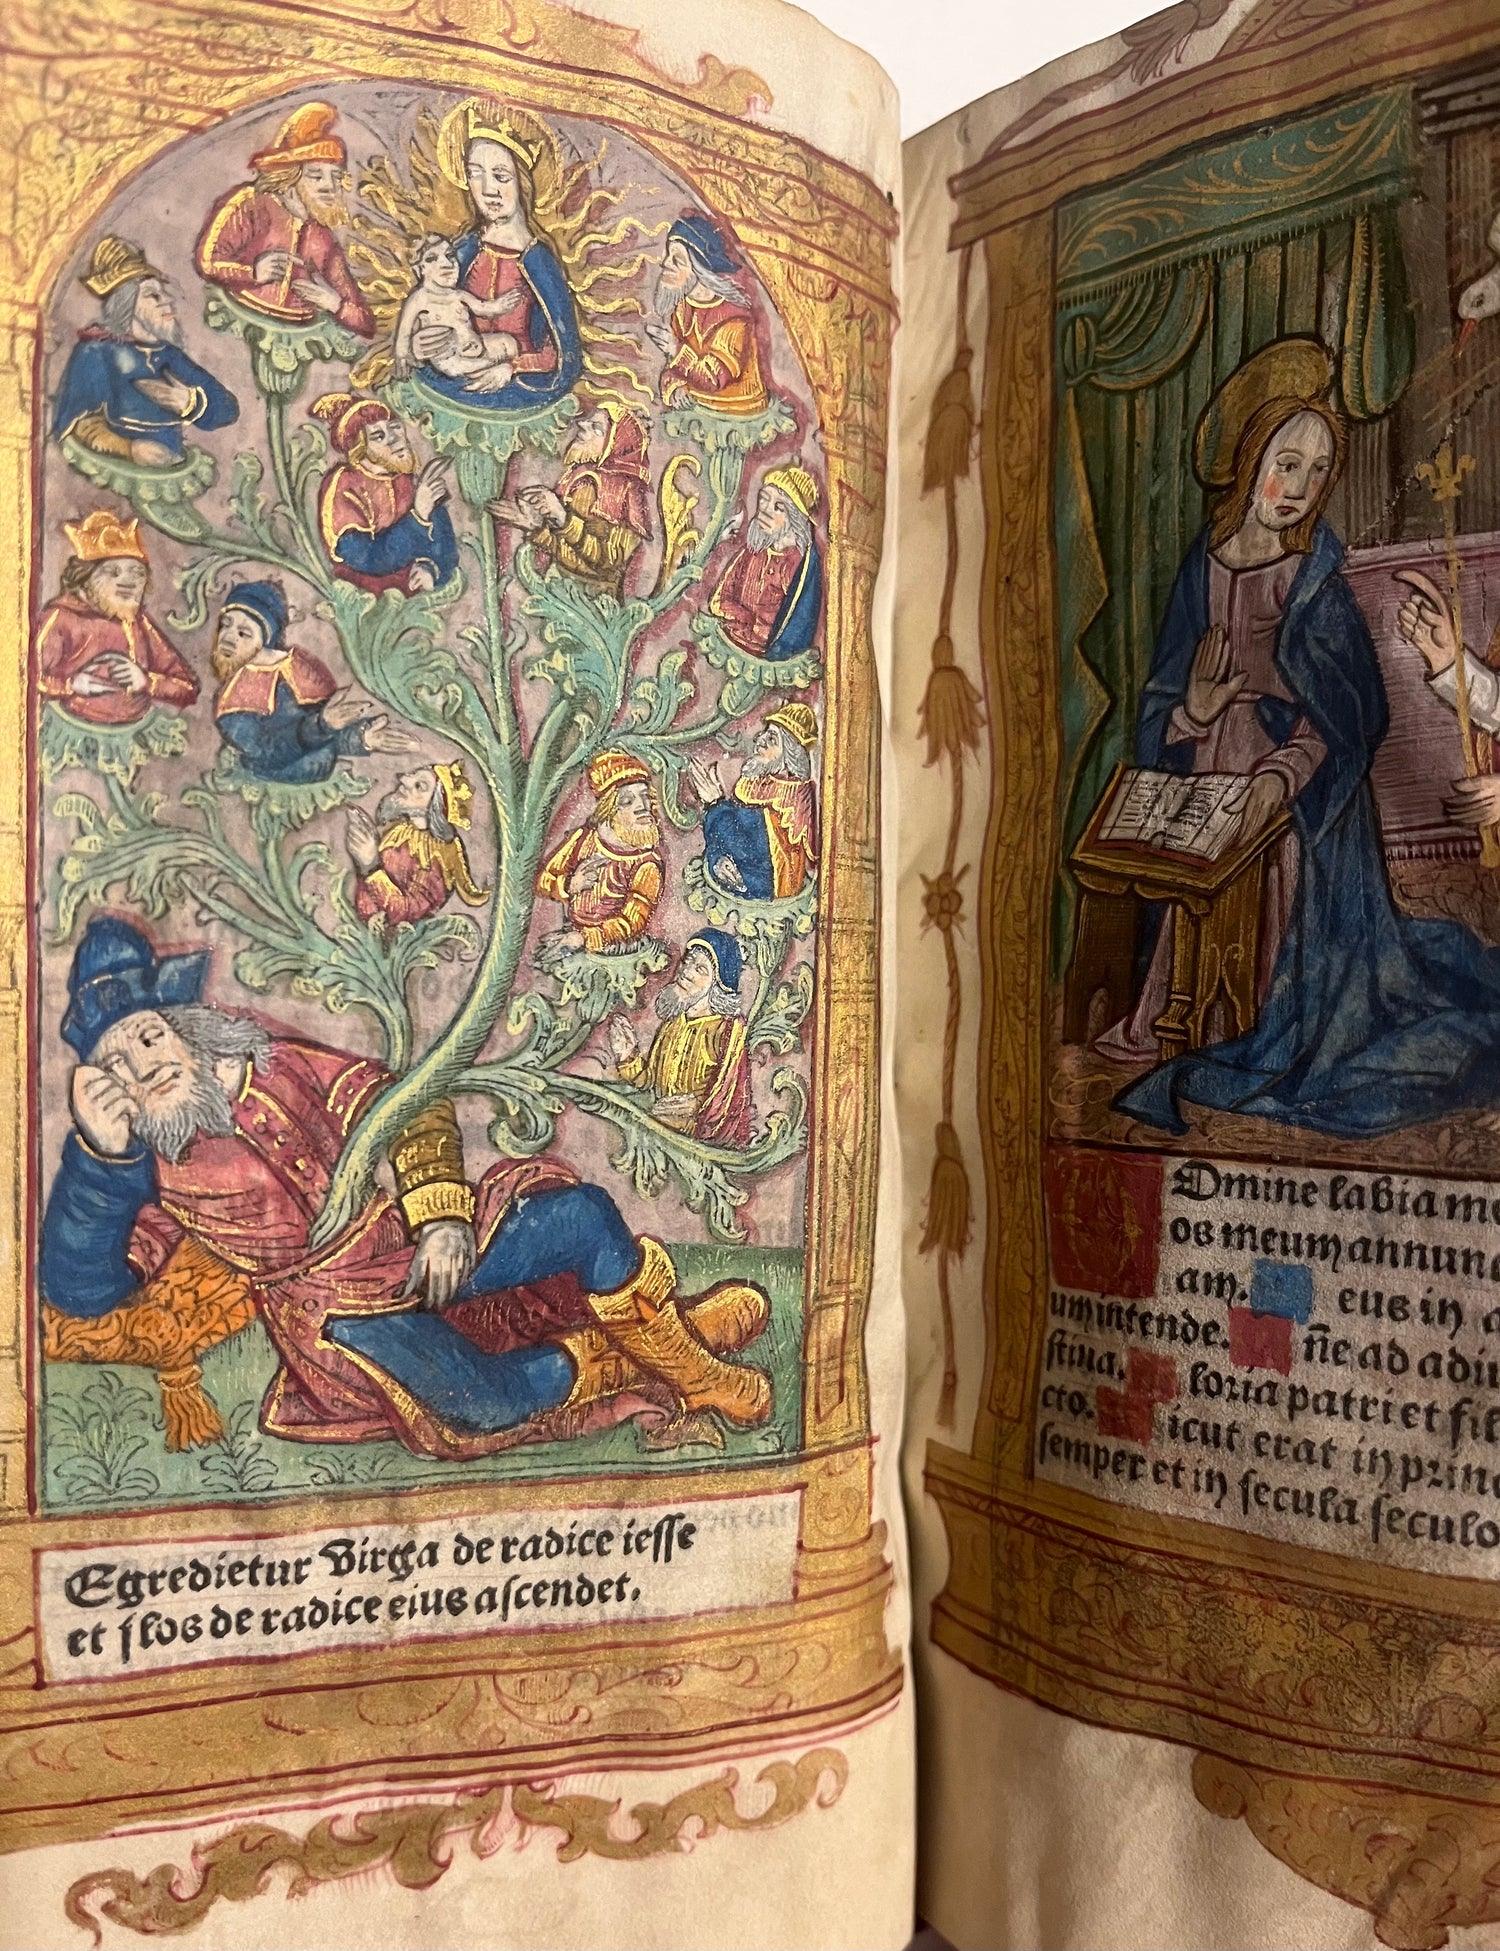 Egredietur Virga de radice iesse
et flos de radice eius ascendet.
Omine labia me
os meum annunc
am. eus in a
um intende. ñe ad adiu
stina. loria patri et fil
cto. icut erat in princ
semper et in secula seculo